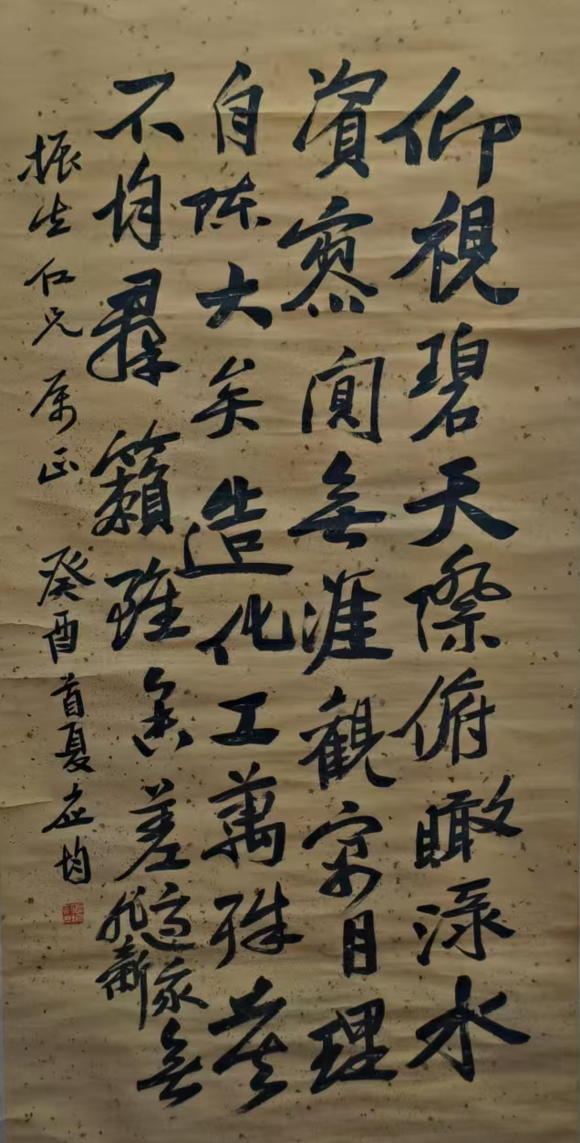 仰視碧天際俯瞰淥水
濱寥閴無涯觀寓目理
自陳大矣造化工萬殊莫
不均羣籟雖參差適我無
非新
振生仁兄属正 癸酉首夏应均